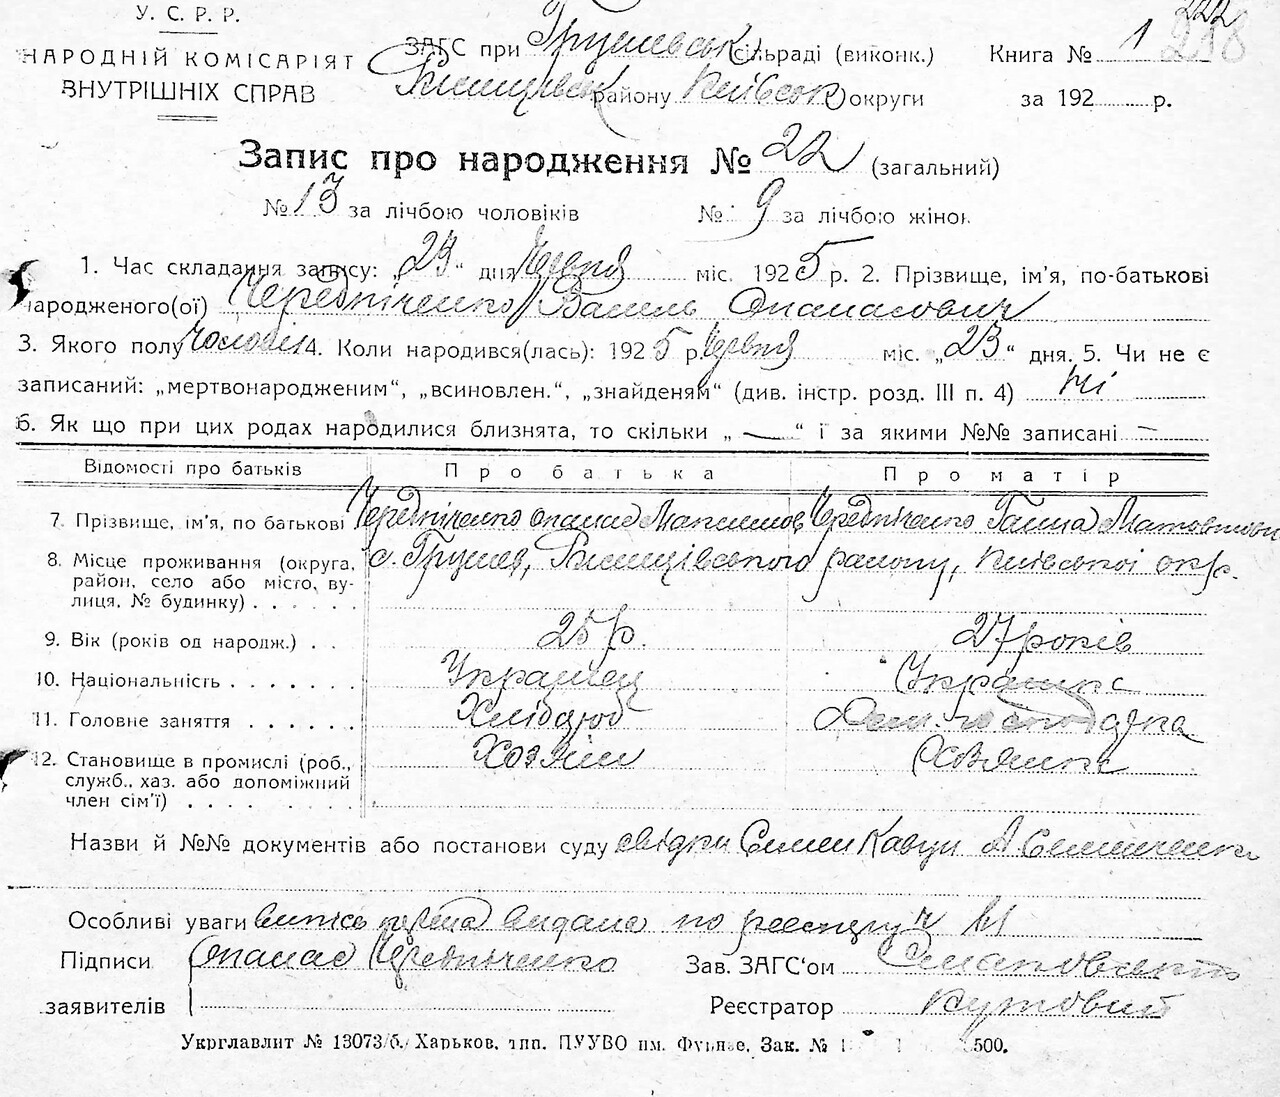 У. С. Р. Р.
НАРОДНІЙ КОМІСАРІЯТ
ВНУТРІШНІХ СПРАВ
ЗАГС при Грушевськ сільраді (виконк.)
району Київськ округи
Книга № 1
за 192 р.
222
218
Запис про народження № 22 (загальний)
№ 13 за лічбою чоловіків № 9 за лічбою жінок
1. Час складання запису: „23“ дня Червня міс. 1925 р. 2. Прізвище, ім'я, по-батькові
народженого(ої) Чередніченко Василь Опанасович
3. Якого полу чоловіч 4. Коли народився(лась): 1925 р. Червня міс. „23“ дня. 5. Чи не є
записаний: „мертвонародженим“, „всиновлен.“, „знайденям“ (див. інстр. розд. III п. 4) ні
6. Як що при цих родах народилися близнята, то скільки „ — “ і за якими №№ записані —
Відомості про батьків Про батька Про матір
7. Прізвище, ім'я, по батькові Чередніченко Опанас Максимов Чередніченко Ганна
8. Місце проживання (округа, с. Грушев, району, Київської окр.
район, село або місто, ву-
лиця, № будинку)
9. Вік (років од народж.) 25 р. 27 років
10. Національність Українец Українка
11. Головне заняття Хлібороб Дом. господарка
12. Становище в промислі (роб., Хозяїн Хозяйка
служб., хаз. або допоміжний
член сім'ї)
Назви й №№ документів або постанови суду свідки Семен Кавун А Семиченко
Особливі уваги випись видана по реєстру ч
Підписи Опанас Чередніченко Зав. ЗАГС'ом
заявителів Реєстратор Кутовий
Укрглавлит № 13073/б. Харьков, тип. ПУУВО им. Фрунзе, Зак. № 500.